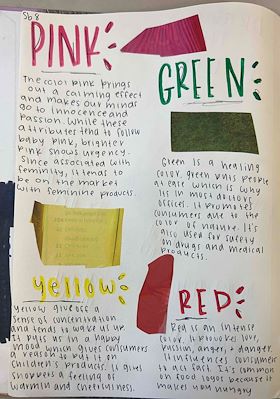 Sb 8
PINK
The color pink brings
out a calming effect
and makes our minds
go to innocence and
passion. While these
attributes tend to follow
baby pink, brighter
pink shows urgency.
Since associated with
feminity, it tends to
be on the market
with feminine products.
GREEN
Green is a healing
color. Green puts people
at ease which is why
its in most doctors
offices. It promotes
consumers due to the
color of nature. It's
also used for safety
on drugs and medical
products.
yellow
Yellow gives off a
sense of concentration
and tends to wake us up.
It puts us in a happy
mood which gives consumers
a reason to put it on
children's products. It gives
consumers a feeling of
warmth and cheeriness.
RED
Red is an intense
color. It provokes love,
passion, anger, + danger.
It influences consumers
to act fast. It's common
on food logos because it
makes us hungry